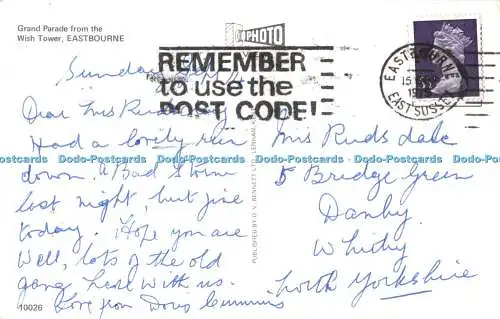 Grand Parade from the
Wish Tower, EASTBOURNE
PHOTO
REMEMBER
to use the
POST CODE!
EASTBOURNE
15
19
EAST SUSSEX
Sunday
Dear Mrs Rudsdale
Had a lovely run
down. A Bad Storm
last night, but fine
today. Hope you are
Well, lots of the old
gang here with us.
Love from Doris Cummins
10026
PUBLISHED BY D. V. BENNETT LTD
Mrs Rudsdale
5 Bridge Green
Danby
Whitby
North Yorkshire
Dodo-Postcards Dodo-Postcards Dodo-Postcards Dodo-Postcards Dodo-Postcards